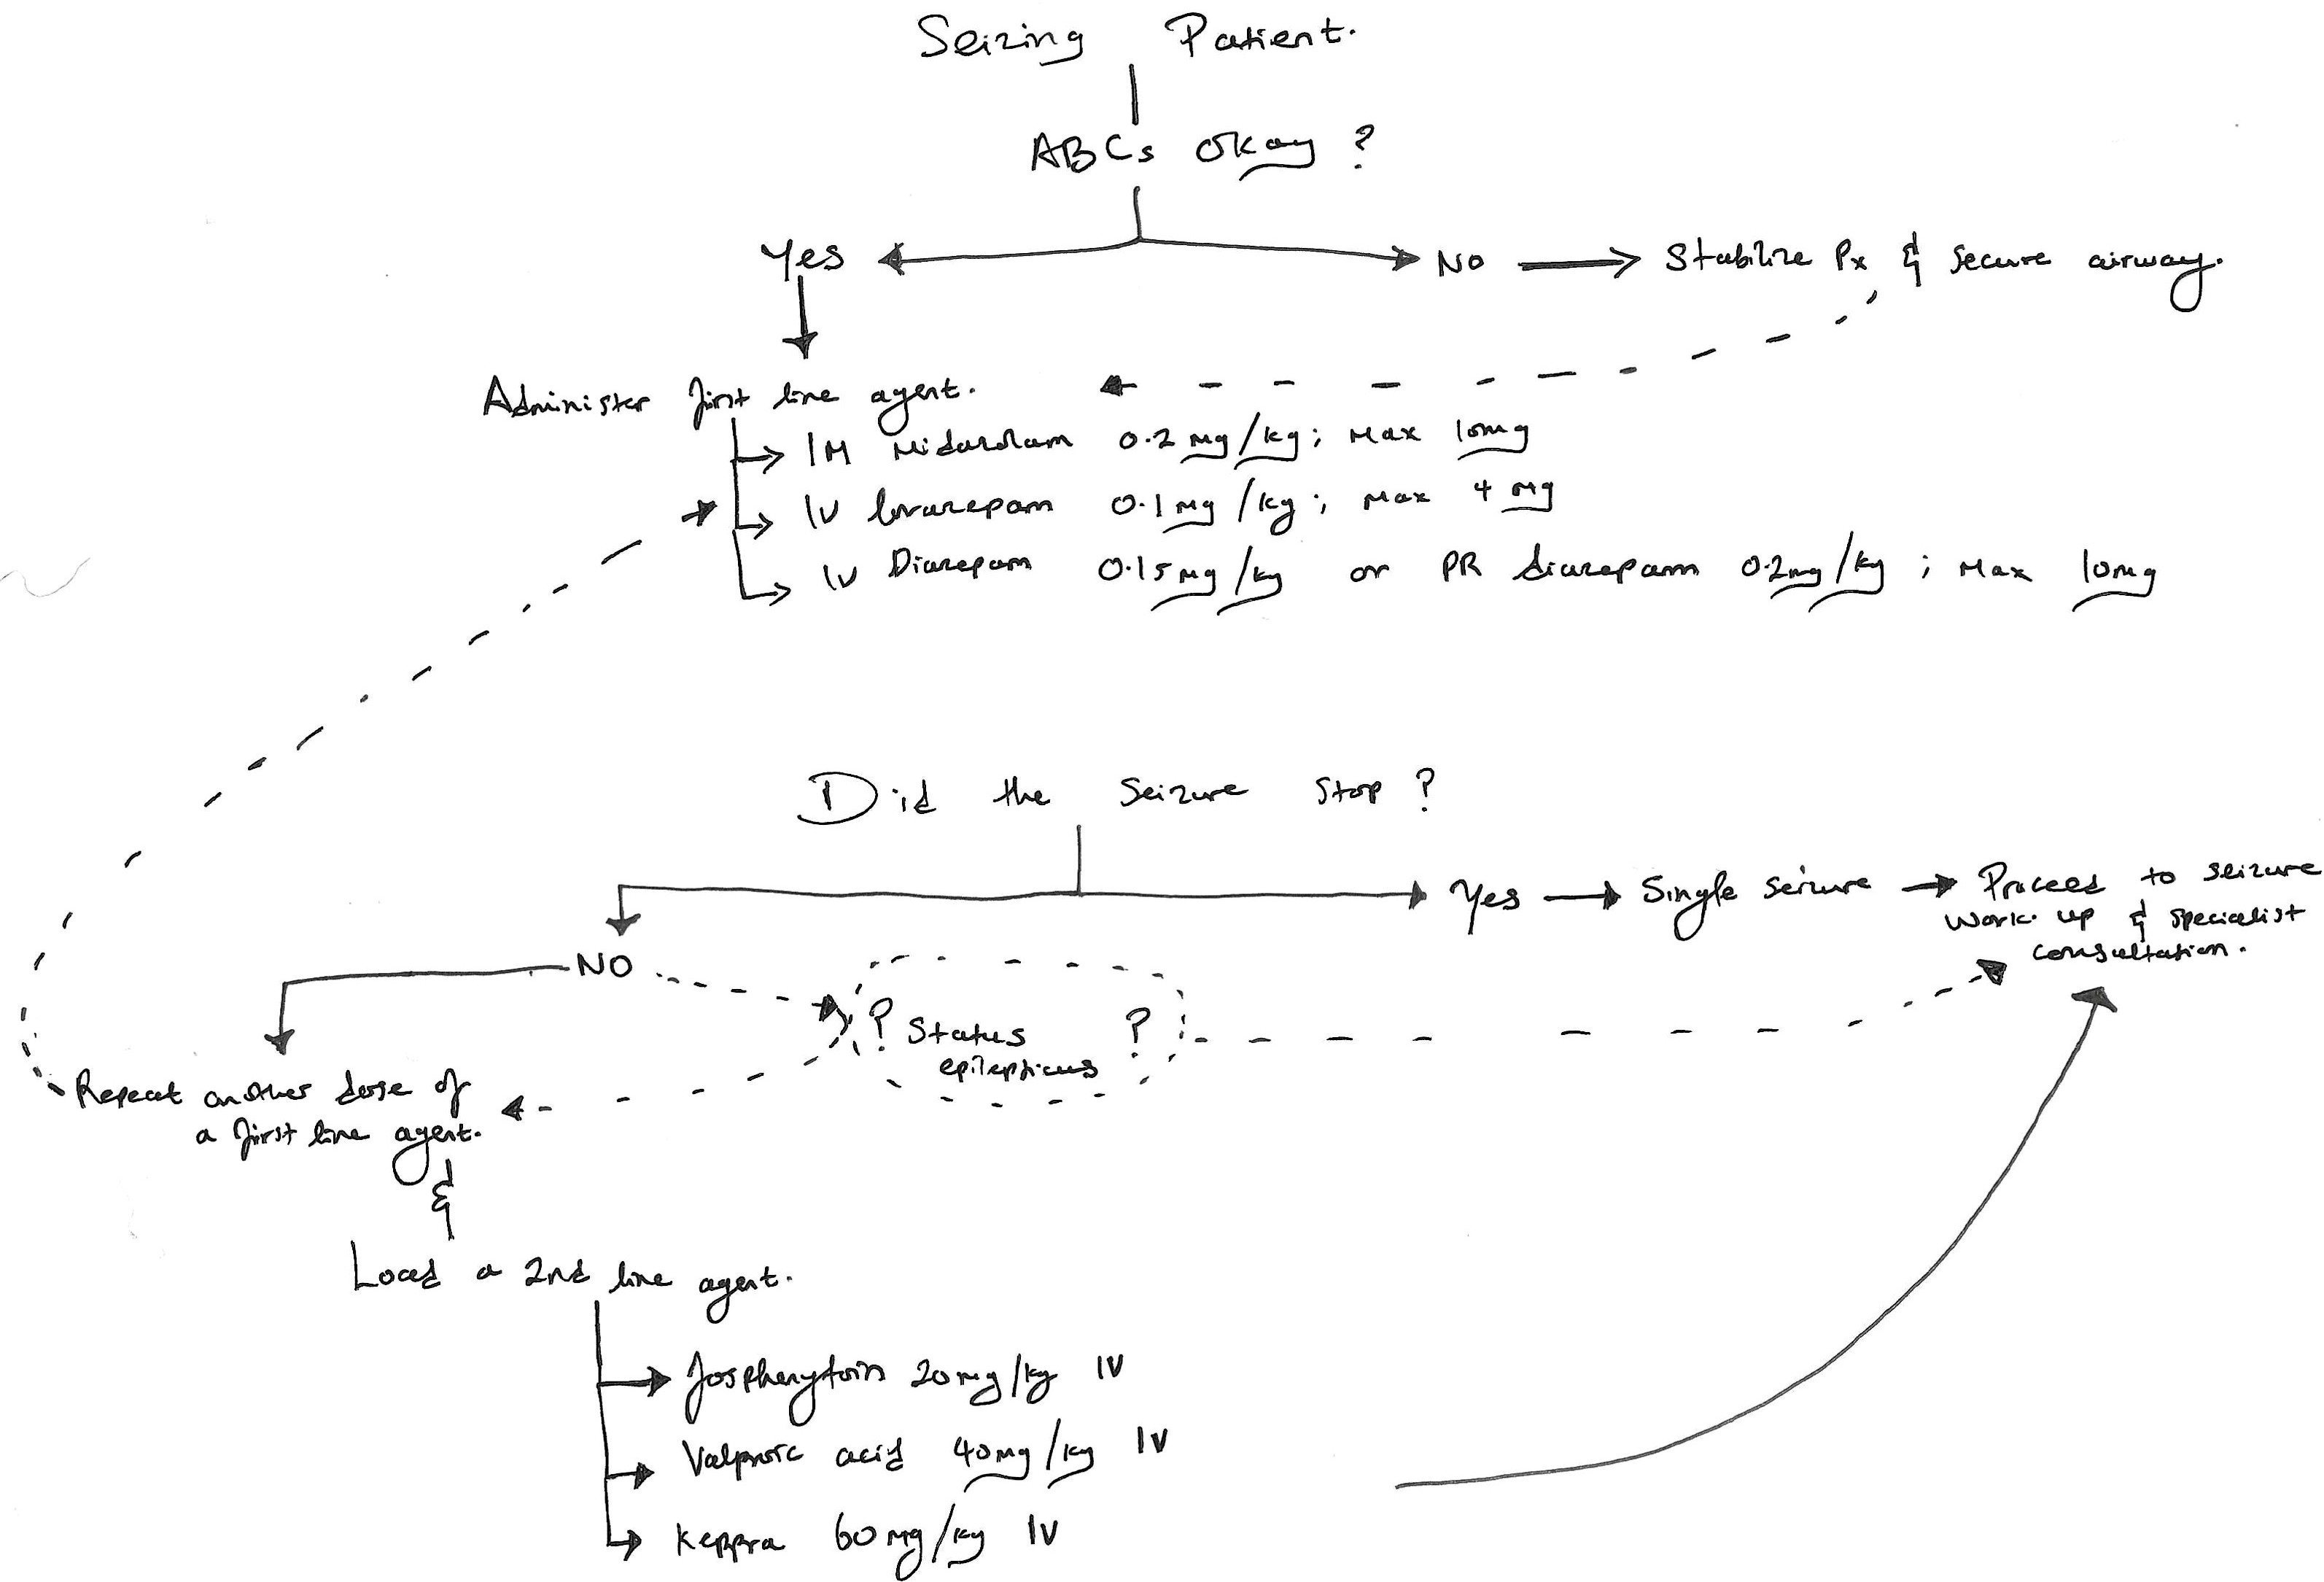 Seizing Patient.
ABCs okay ?
Yes
No
Stabilize Px & secure airway.
Administer first line agent.
IM Midazolam 0.2 mg/kg; Max 10mg
IV lorazepam 0.1 mg/kg; Max 4 mg
IV Diazepam 0.15 mg/kg or PR diazepam 0.2mg/kg ; Max 10mg
Did the Seizure Stop ?
Yes
Single seizure
Proceed to seizure
work up & specialist
consultation.
NO
? Status ?
epilepticus
Repeat another dose of
a first line agent.
&
Load a 2nd line agent.
fosphenytoin 20mg/kg IV
Valproic acid 40mg/kg IV
Keppra 60mg/kg IV